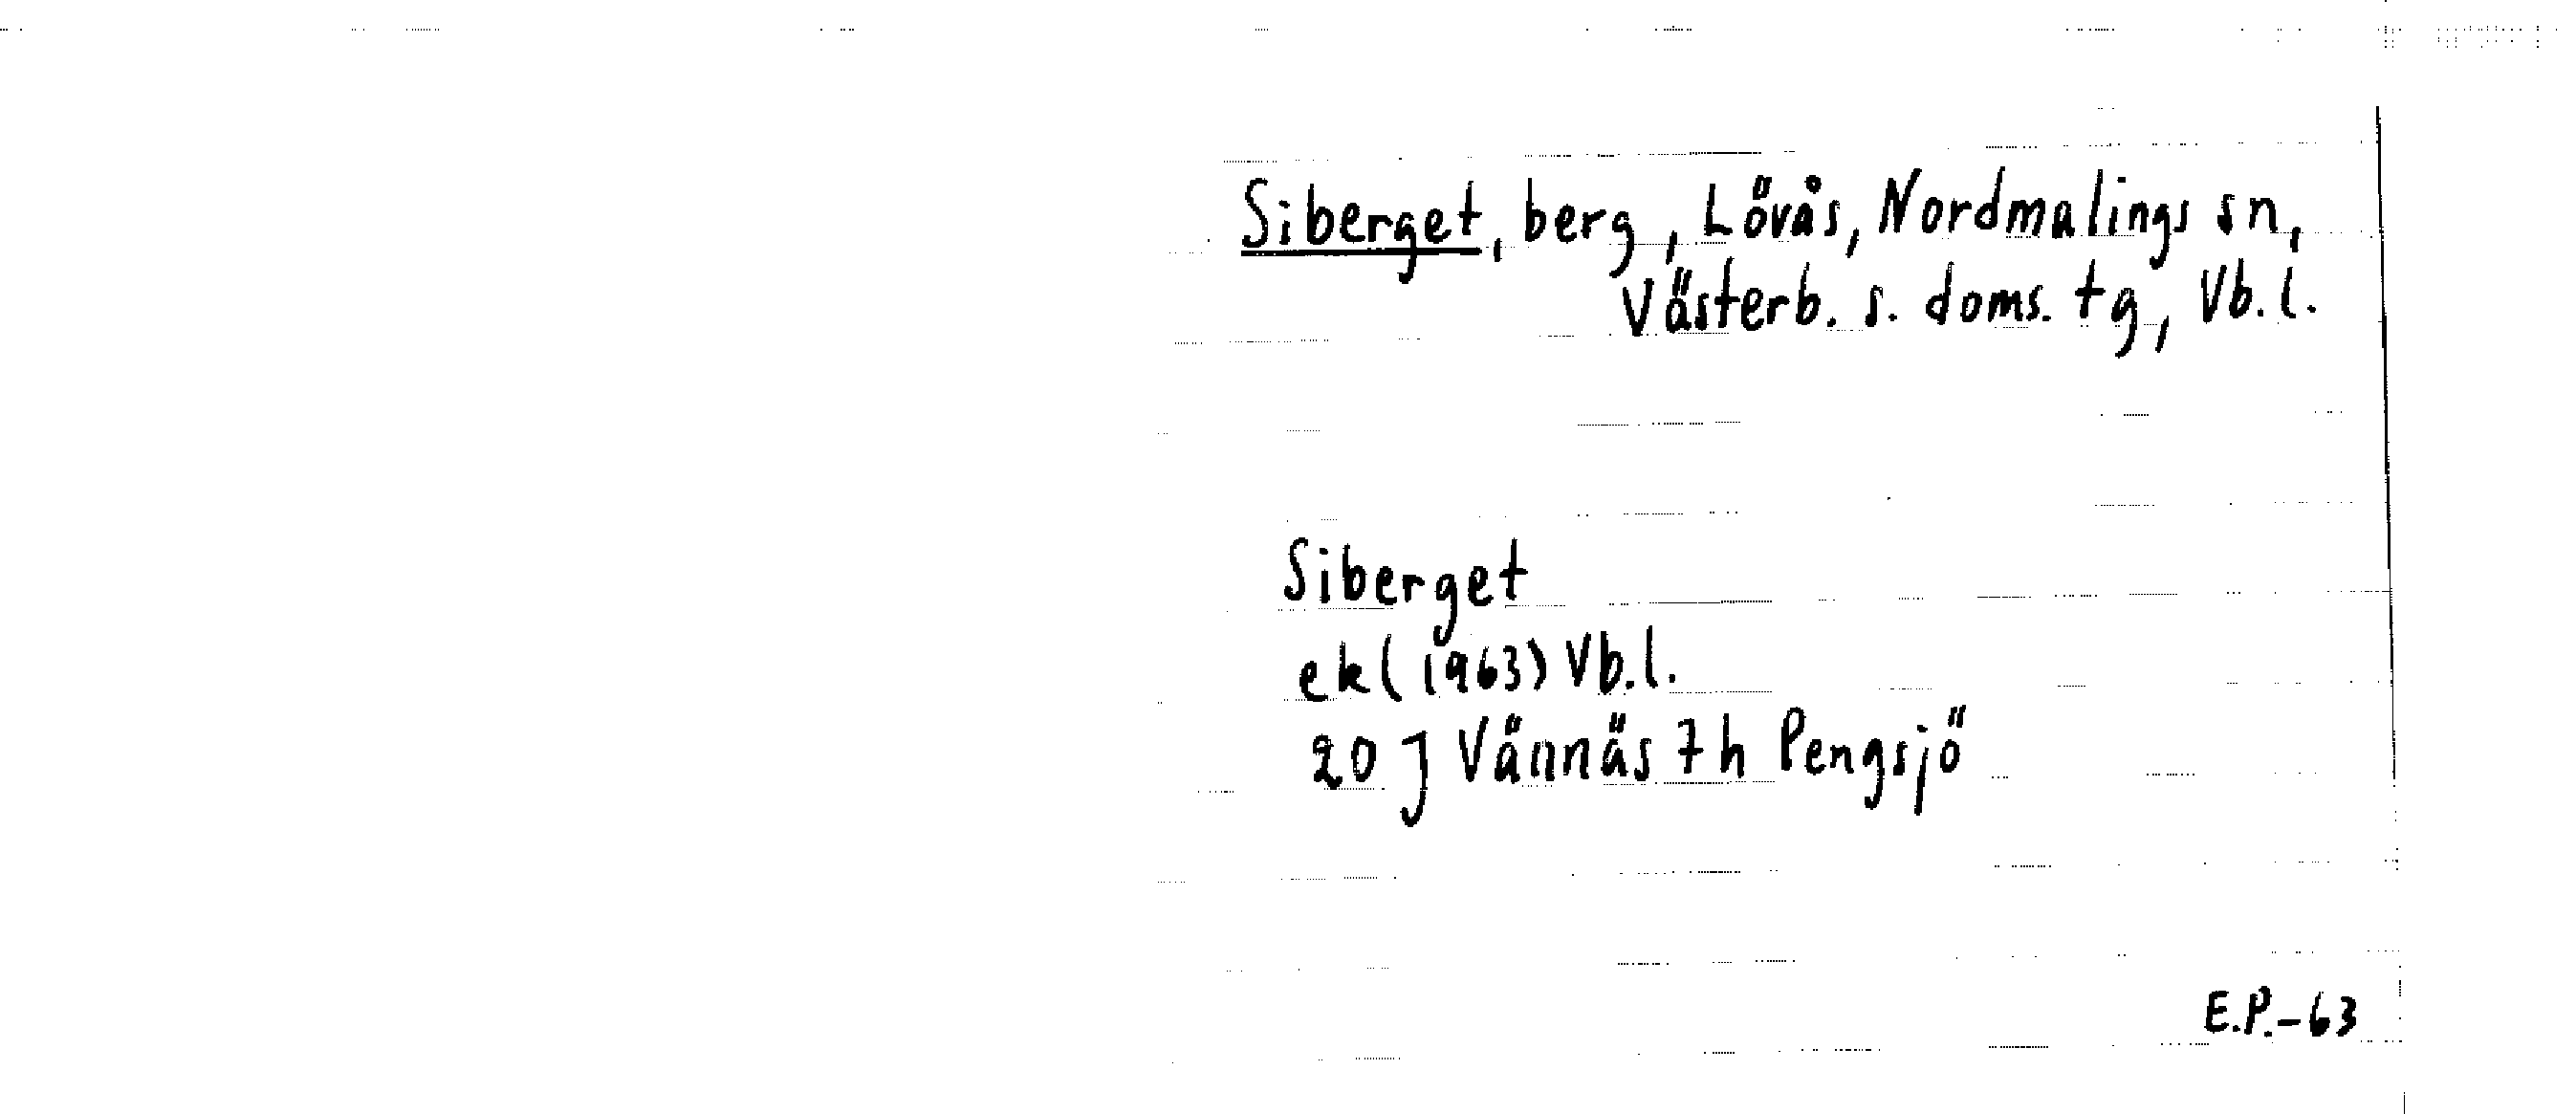 Siberget, berg, Lövås, Nordmalings sn,
Västerb. s. doms. tg, Vb.l.
Siberget
ek (1963) Vb.l.
20 J Vännäs 7h Pengsjö
E.P.-63